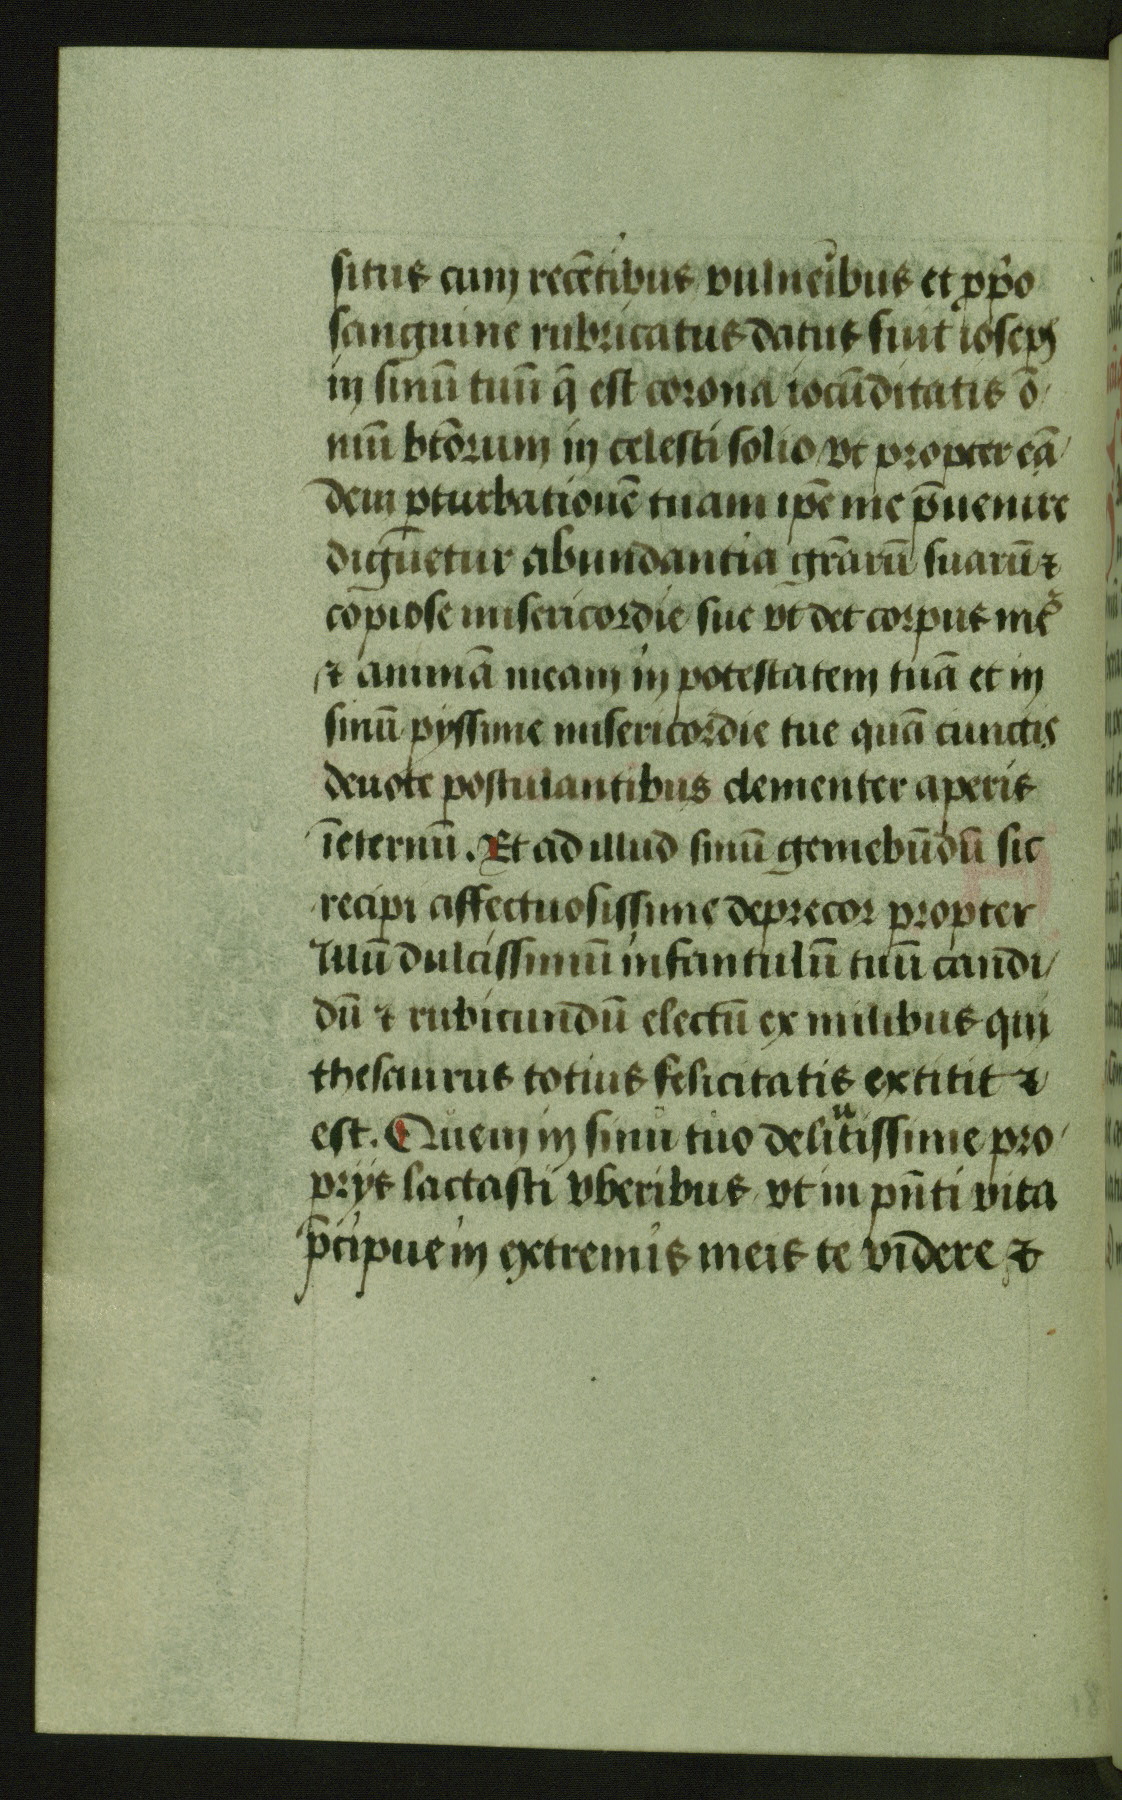 situs cum recētibus vulneribus et ꝓp̄o
sanguine rubricatus datus fuit ioseph
in sinū tuū q̄ est corona iocūditatis ō
niū btōrum in celesti solio vt propter eā
dem ꝑturbationē tuam ip̄e me p̄uenire
dignetur abundantia grārū suarū ⁊
copiose misericordie sue vt det corpus meū
⁊ animā meam in potestatem tuā et in
sinū pyssime misericordie tue quā cunctis
deuote postulantibus clementer aperis
īeternū. Et ad illud sinū gemebūdū sic
recipi affectuosissime deprecor propter
illū dulcissimū infantulū tuū candi
dū ⁊ rubicundū electū ex milibus qui
thesaurus totius felicitatis extitit ⁊
est. Quem in sinu tuo delitissime pro
prijs lactasti vberibus vt in pn̄ti vita
p̄cipue in extremis meis te videre ⁊